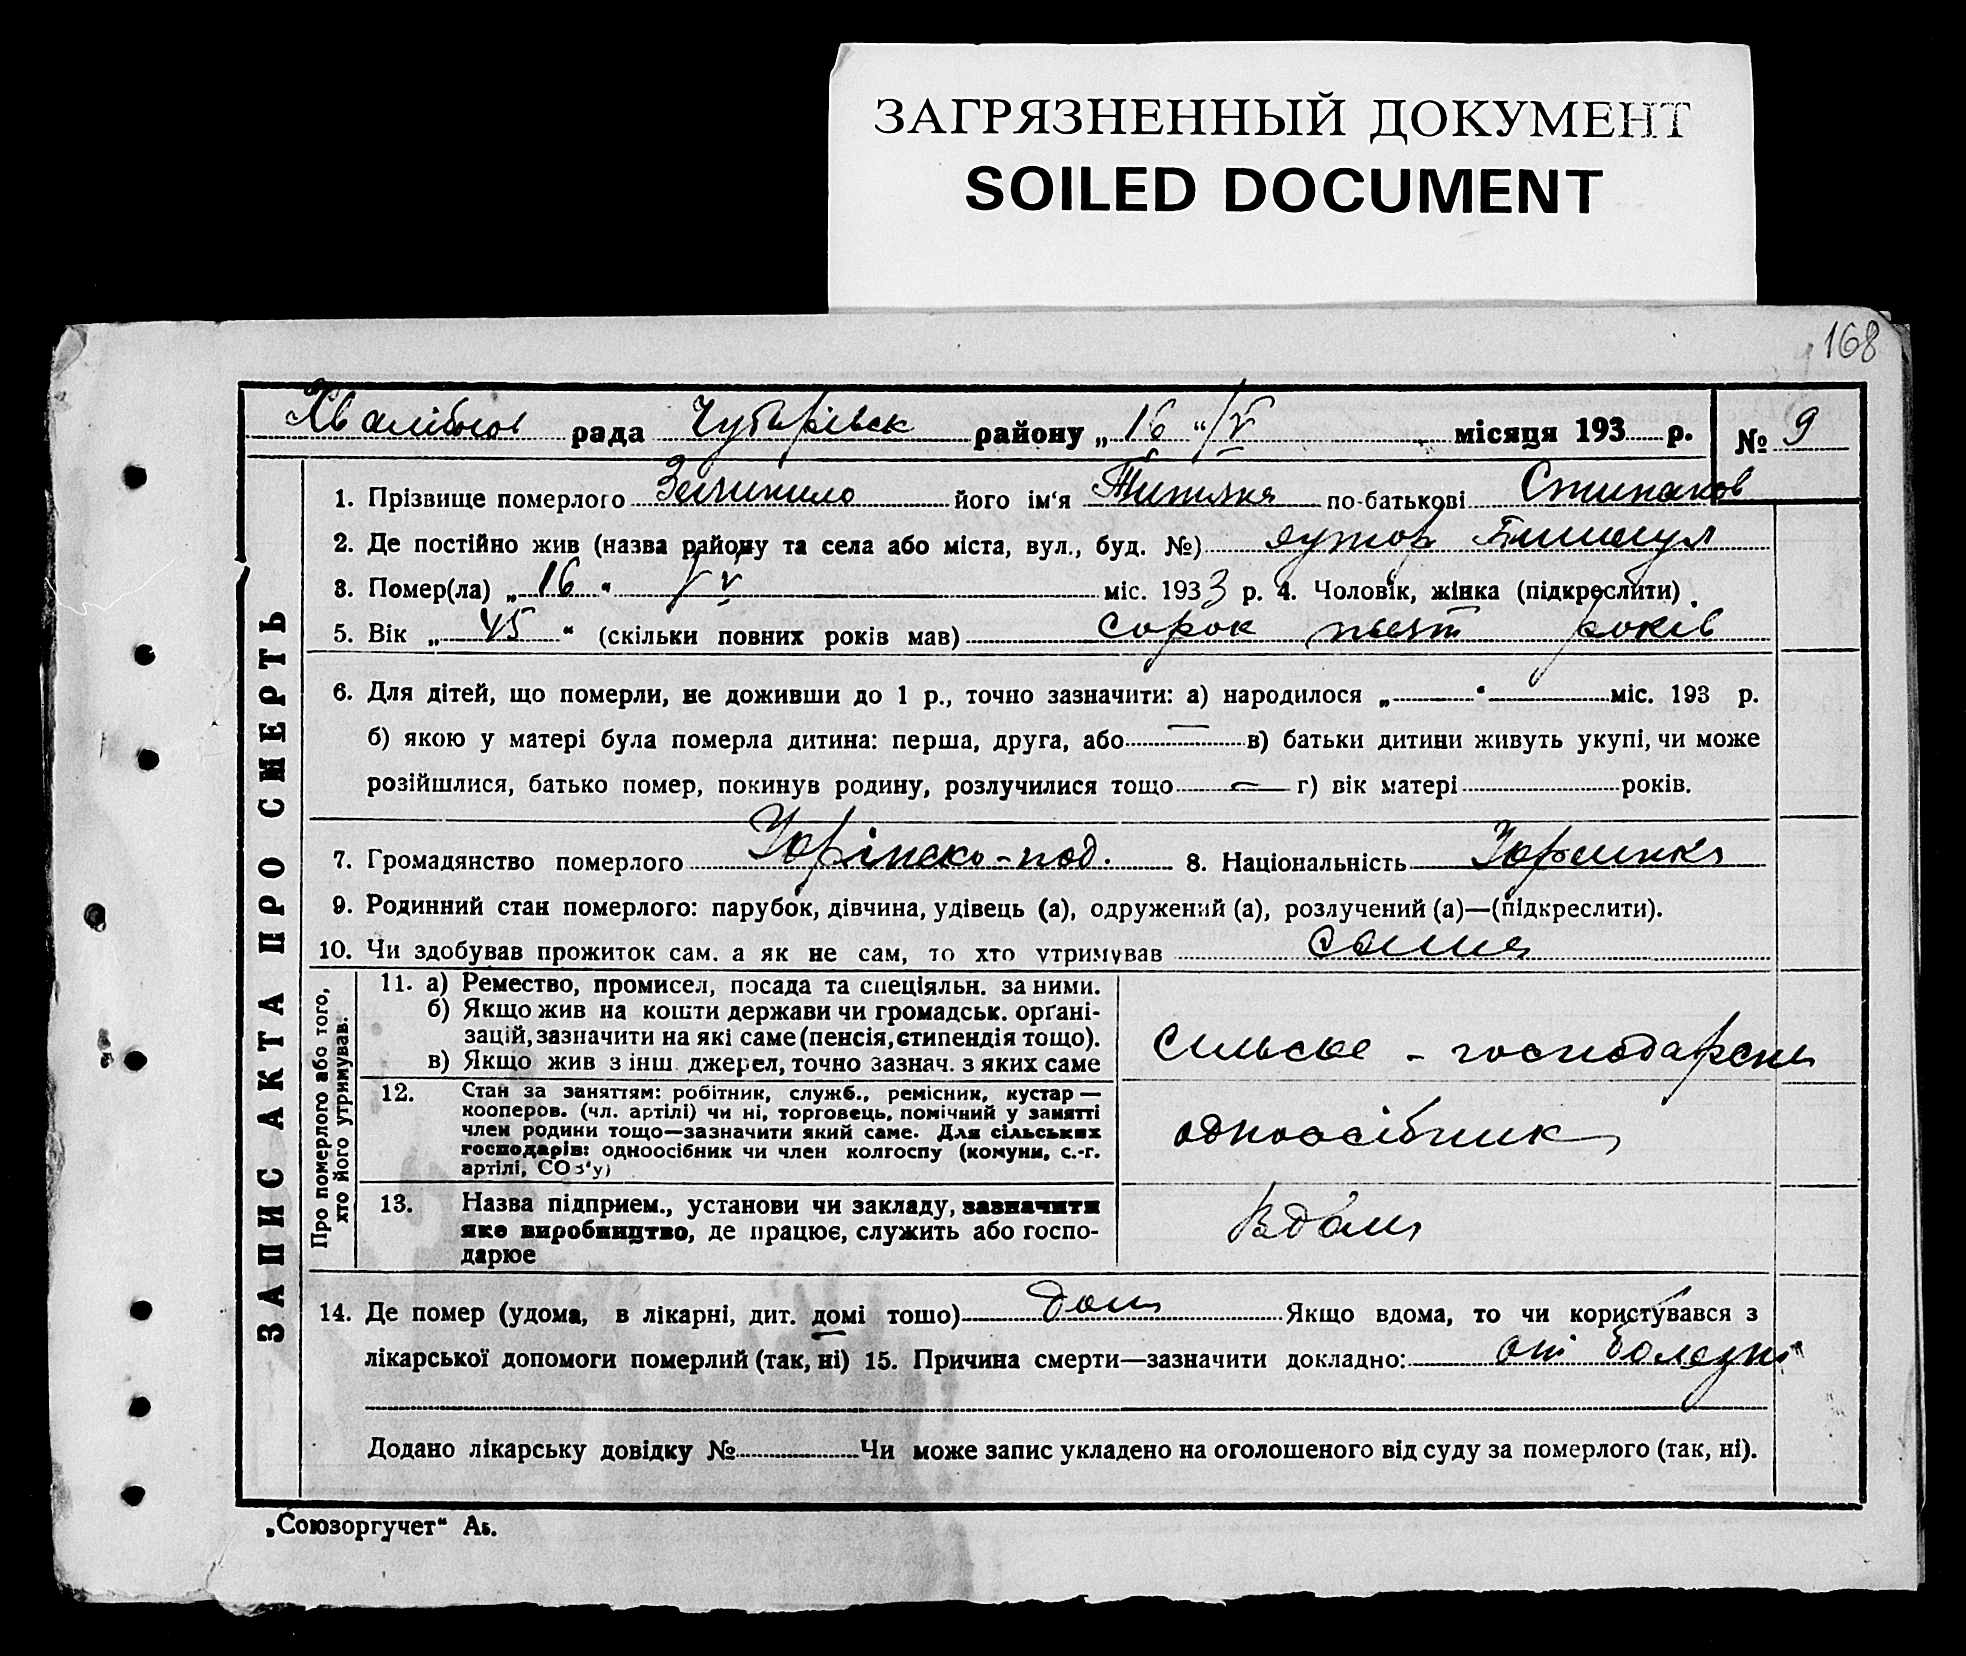 ЗАГРЯЗНЕННЫЙ ДОКУМЕНТ
SOILED DOCUMENT
168
рада Чубарівск району „16“ /V місяця 193 р. № 9
1. Прізвище померлого його ім'я по-батькові
2. Де постійно жив (назва району та села або міста, вул., буд. №) хутор
3. Помер(ла) „16“ V міс. 1933 р. 4. Чоловік, жінка (підкреслити)
5. Вік „45“ (скільки повних років мав) сорок пьять років
6. Для дітей, що померли, не доживши до 1 р., точно зазначити: а) народилося „ “ міс. 193 р.
б) якою у матері була померла дитина: перша, друга, або — в) батьки дитини живуть укупі, чи може
розійшлися, батько помер, покинув родину, розлучилися тощо — г) вік матері років.
7. Громадянство померлого Україпско-под. 8. Національність Українка
9. Родинний стан померлого: парубок, дівчина, удівець (а), одружений (а), розлучений (а)—(підкреслити).
10. Чи здобував прожиток сам. а як не сам, то хто утримував сама
ЗАПИС АКТА ПРО СМЕРТЬ
Про померлого або того,
хто його утримував.
11. а) Ремество, промисел, посада та спеціяльн. за ними.
б) Якщо жив на кошти держави чи громадськ. орґані-
зацій, зазначити на які саме (пенсія, стипендія тощо).
в) Якщо жив з інш. джерел, точно зазнач. з яких саме
сильське - господарськ
12. Стан за заняттям: робітник, служб., ремісник, кустар—
кооперов. (чл. артілі) чи ні, торговець, помічний у занятті
член родини тощо—зазначити який саме. Для сільських
господарів: одноосібник чи член колгоспу (комуни, с.-г.
артілі, СОЗ'у)
одноосібник
13. Назва підприєм., установи чи закладу, зазначити
яке виробництво, де працює, служить або госпо-
дарює
вдома
14. Де помер (удома, в лікарні, дит. домі тошо) дома Якщо вдома, то чи користувався з
лікарської допомоги померлий (так, ні) 15. Причина смерти—зазначити докладно: от болезні
Додано лікарську довідку № Чи може запис укладено на оголошеного від суду за померлого (так, ні).
„Союзоргучет“ Аь.